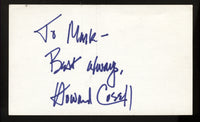 To Mark-
Best always,
Howard Cosell